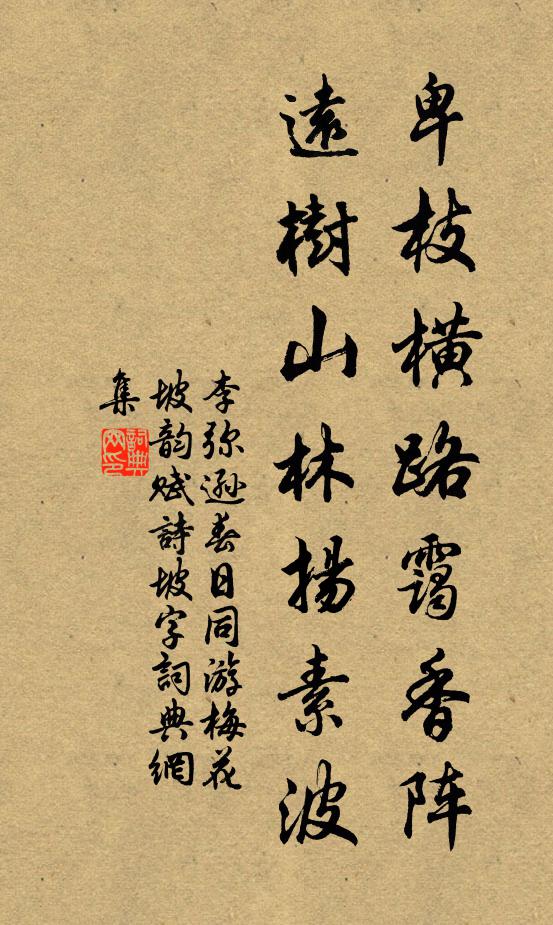 卑枝橫路靄香阵
遠樹山林揚素波
李弥遜春日同游梅花
坡韵赋詩坡字詞典網
集
詞典網印